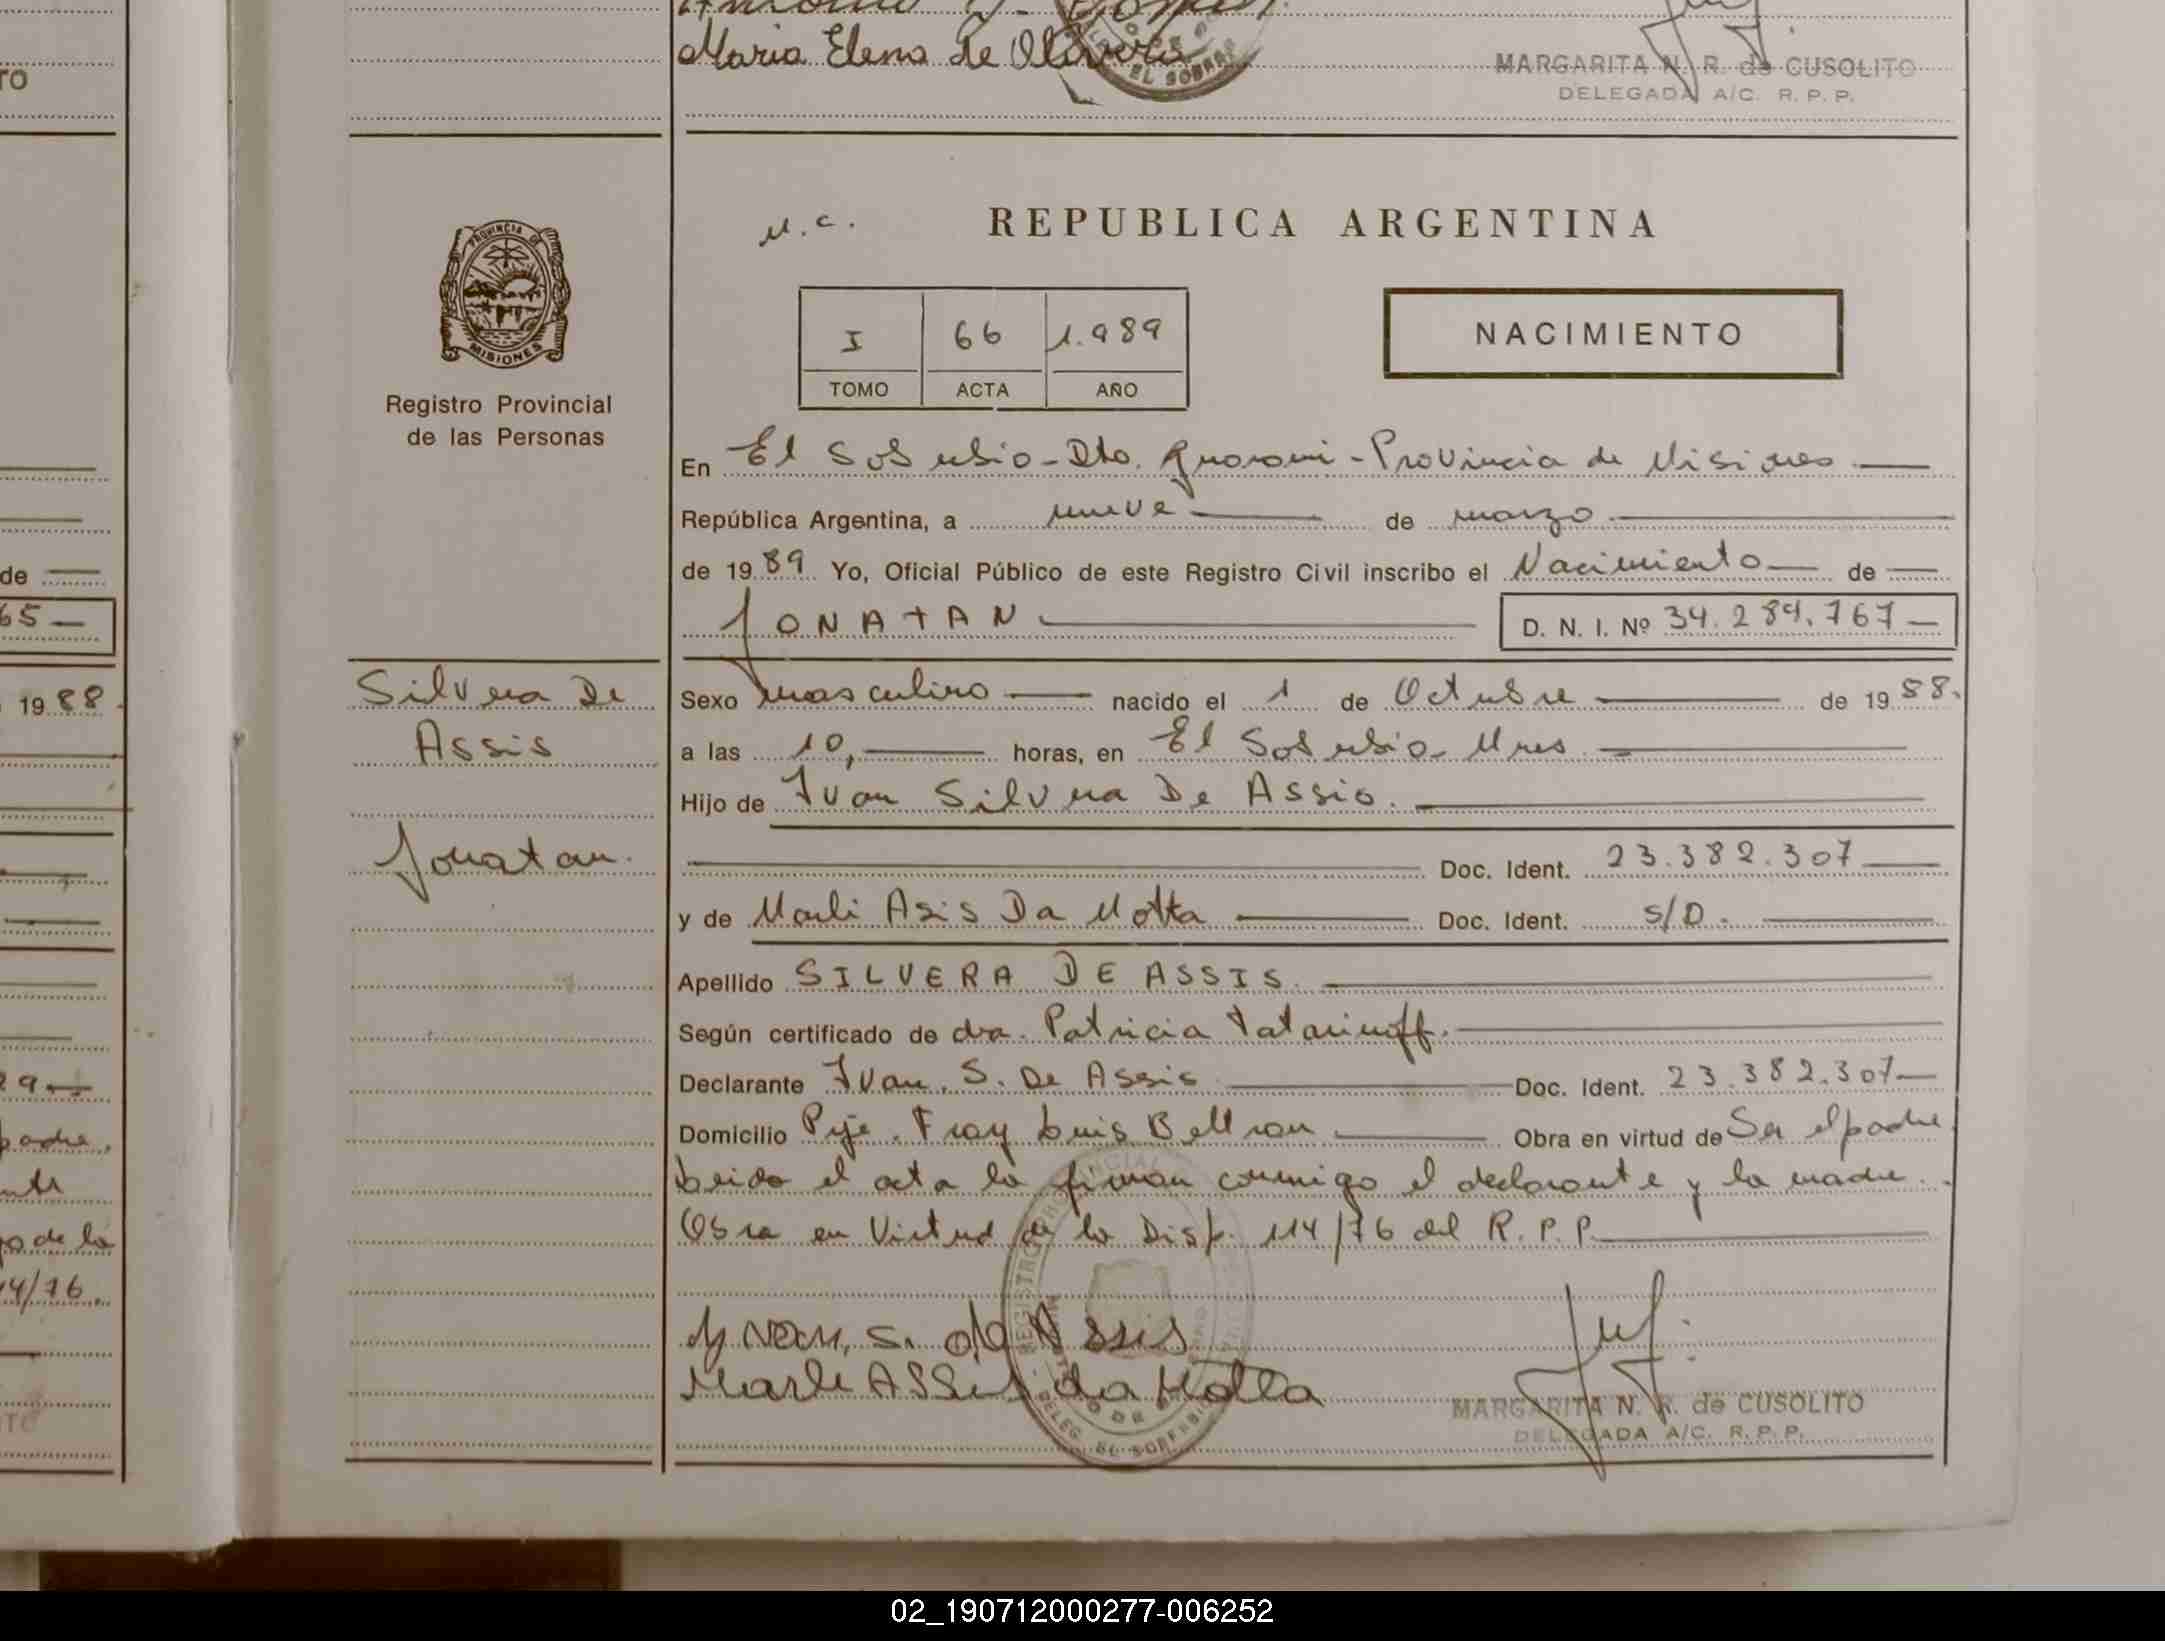 TO
de
65
1988
29
padre,
go de la
14/76.
Maria Elena de Olivera
EL SOBERBIO
MARGARITA N. R. de CUSOLITO
DELEGADA A/C. R. P. P.
PROVINCIA DE
MISIONES
Registro Provincial
de las Personas
Silvera De
Assis
Jonatan.
N.C.
REPUBLICA ARGENTINA
I 66 1.989
TOMO ACTA AÑO
NACIMIENTO
En El Soberbio - Dto. Guarani - Provincia de Misiones
República Argentina, a nueve de marzo
de 1989 Yo, Oficial Público de este Registro Civil inscribo el Nacimiento de
JONATAN
D. N. I. Nº 34.289.767
Sexo masculino nacido el 1 de Octubre de 1988.
a las 10, horas, en El Soberbio - Mnes
Hijo de Ivan Silvera De Assis.
Doc. Ident. 23.382.307
y de Marli Asis Da Motta Doc. Ident. S/D.
Apellido SILVERA DE ASSIS
Según certificado de dra. Patricia Tatarinoff.
Declarante Ivan. S. De Assis Doc. Ident. 23.382.307
Domicilio Pje. Fray Luis Beltran Obra en virtud de Ser el padre.
Leida el acta la firman conmigo el declarante y la madre.
Obra en Virtud de la Disp. 114/76 del R.P.P.
Yvan, S. de Assis
Marli ASSis da Motta
DELEG. EL SOBERBIO
MARGARITA N. R. de CUSOLITO
DELEGADA A/C. R. P. P.
02_190712000277-006252